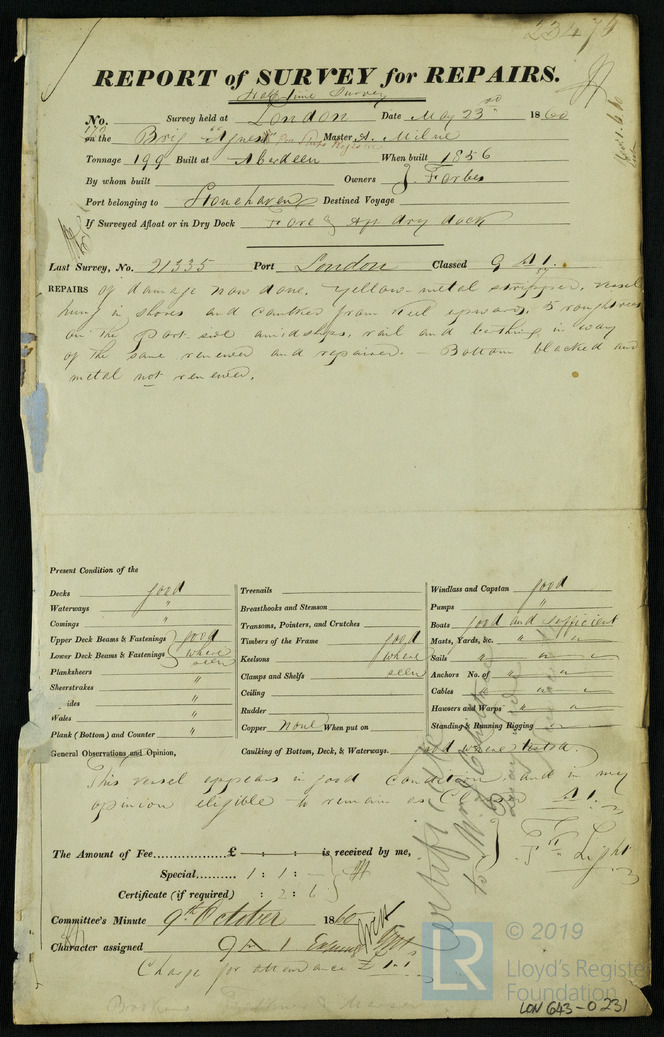 23474
REPORT of SURVEY for REPAIRS.
Half time Survey
No. Survey held at London Date May 23rd 1860
on the Brig Agnes Master A. Milne
Tonnage 199 Built at Aberdeen When built 1856
By whom built Owners Forbes
Port belonging to Stonehaven Destined Voyage
If Surveyed Afloat or in Dry Dock Fore & Aft dry dock
Last Survey, No. 21335 Port London Classed 9 A 1.
REPAIRS of damage now done. Yellow metal stripped, vessel
hung in shores and caulked from keel upwards, 5 roughtrees
on the port side amidships, rail and in way
of the same renewed and repaired. – Bottom blacked and
metal not renewed.
Present Condition of the
Decks good
Waterways "
Comings "
Upper Deck Beams & Fastenings good
Lower Deck Beams & Fastenings where seen
Planksheers "
Sheerstrakes "
ides "
Wales "
Plank (Bottom) and Counter "
Treenails
Breasthooks and Stemson
Transoms, Pointers, and Crutches
Timbers of the Frame good
Keelsons where
Clamps and Shelfs seen
Ceiling
Rudder
Copper none When put on
Caulking of Bottom, Deck, & Waterways. good where tested.
Windlass and Capstan good
Pumps "
Boats good and sufficient
Masts, Yards, &c. " " "
Sails " " "
Anchors No. of " " "
Cables " " "
Hawsers and Warps " " "
Standing & Running Rigging " "
General Observations and Opinion,
This vessel appears in good condition, and in my
opinion eligible to remain as Classed A 1.
Light
Certificate
to
The Amount of Fee £ is received by me,
Special 1 : 1 : –
Certificate (if required) : 2 : 6
Committee's Minute 9th October 1860
Character assigned 9 A 1
Charge for attendance £1.1.
LR
© 2019
Lloyd's Register
Foundation
LON 643-0231